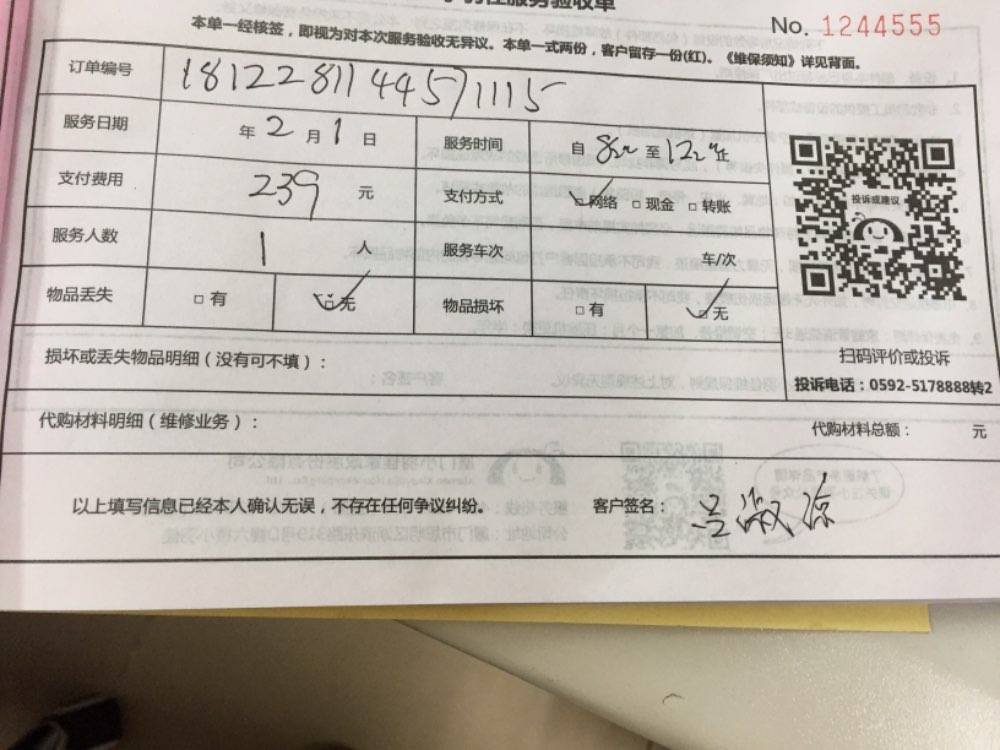 服务验收单
No. 1244555
本单一经核签，即视为对本次服务验收无异议。本单一式两份，客户留存一份(红)。《维保须知》详见背面。
订单编号 1812281144571115
服务日期 年 2 月 1 日 服务时间 自 至 止
支付费用 239 元 支付方式 网络 □ 现金 □ 转账
服务人数 1 人 服务车次 车/次
物品丢失 □ 有 ☑ 无 物品损坏 □ 有 ☑ 无
投诉或建议
扫码评价或投诉
投诉电话：0592-5178888转2
损坏或丢失物品明细（没有可不填）：
代购材料明细（维修业务）： 代购材料总额： 元
以上填写信息已经本人确认无误，不存在任何争议纠纷。 客户签名：